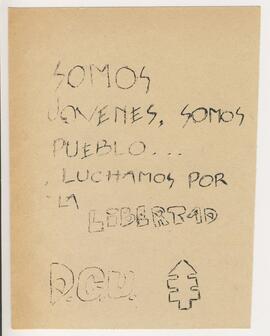 SOMOS
JOVENES, SOMOS
PUEBLO...
LUCHAMOS POR
LA LIBERTAD
D.C.U.